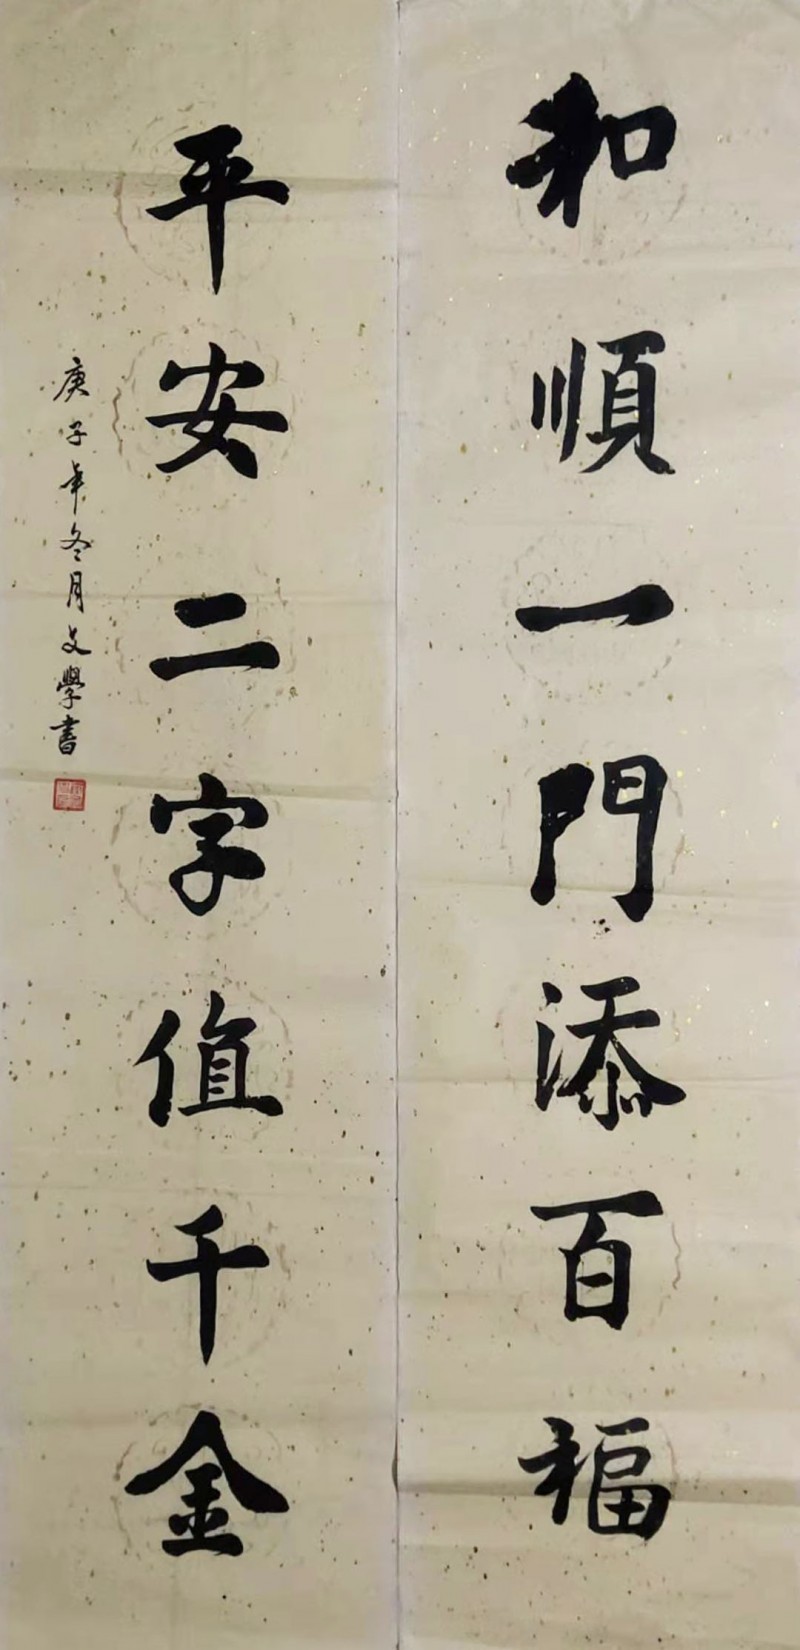 和順一門添百福
平安二字值千金
庚子年冬月文學書